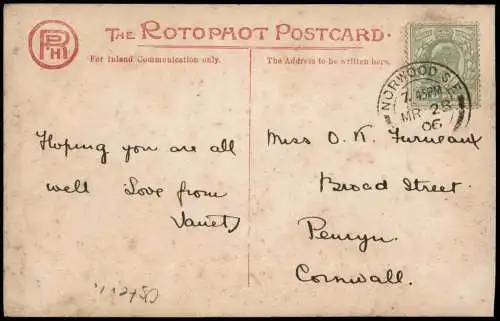 RPH
THE ROTOPHOT POSTCARD.
For Inland Communication only.
The Address to be written here.
NORWOOD S.E
7.45PM
MR 28
06
Hoping you are all
well Love from
Janet
Miss O. K. Furneaux
Broad Street
Penryn
Cornwall.